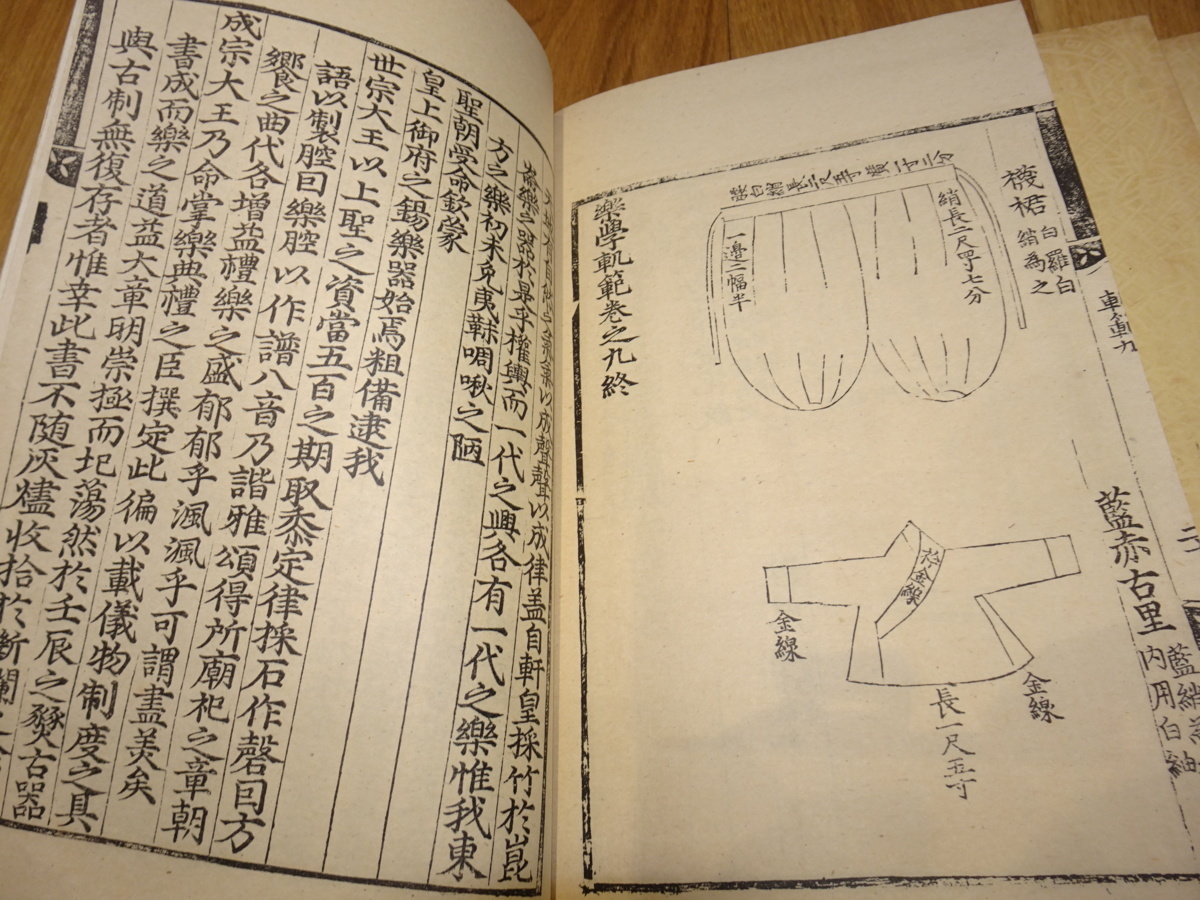 襪裙
白羅白
綃為之
綃長二尺四寸七分
一邊二幅半
藍赤古里
藍綃為
內用白紬
衿金線
金線
金線
長一尺五寸
軌範九
樂學軌範卷之九終
以成聲聲以成律盖自軒皇採竹於崑
崙樂之器於是乎權輿而一代之興各有一代之樂惟我東
方之樂初未免夷靺啁啾之陋
聖朝受命欽蒙
皇上御府之錫樂器始焉粗備逮我
世宗大王以上聖之資當五百之期取黍定律採石作磬囙方
語以製腔囙樂腔以作譜八音乃諧雅頌得所廟祀之章朝
饗之曲代各增益禮樂之盛郁郁乎渢渢乎可謂盡美矣
成宗大王乃命掌樂典禮之臣撰定此徧以載儀物制度之具
書成而樂之道益大章明崇極而圮蕩然於壬辰之燹古器
與古制無復存者惟幸此書不随灰燼收拾於断爛